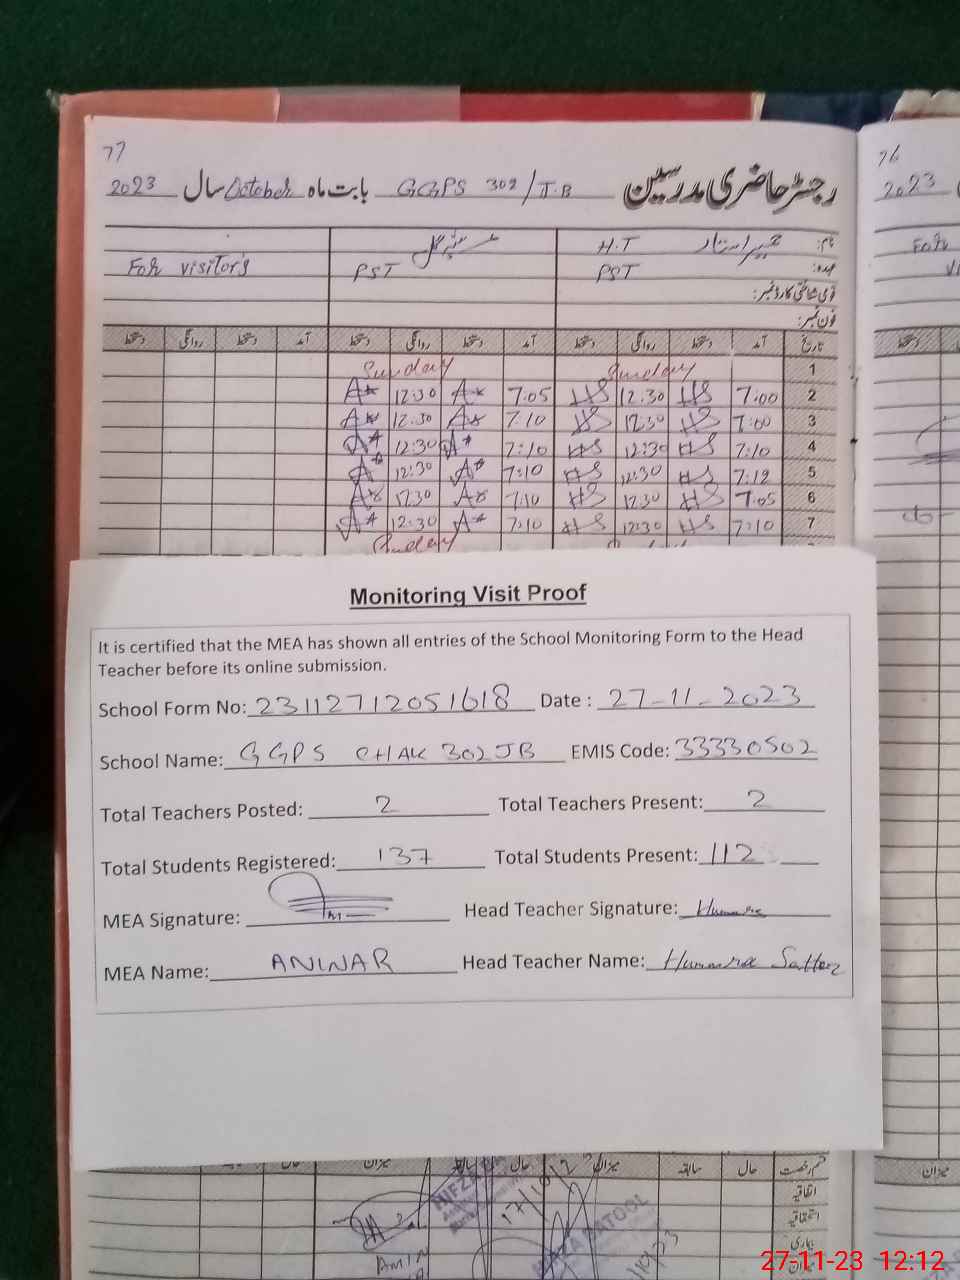 77
رجسٹر حاضری مدرسین GGPS 302/T.B بابت ماہ October سال 2023
76
2023
نام: H.T
For visitor's PST PST عہدہ:
قومی شناختی کارڈ نمبر:
فون نمبر:
تاریخ آمد دستخط روانگی دستخط آمد دستخط روانگی دستخط آمد دستخط روانگی دستخط
1 Sunday Sunday
2 7:00 HS 12:30 HS 7:05 A* 12:30 A*
3 7:00 HS 12:30 HS 7:10 A* 12:30 A*
4 7:10 HS 12:30 HS 7:10 A* 12:30 A*
5 7:12 HS 12:30 HS 7:10 A* 12:30 A*
6 7:05 HS 12:30 HS 7:10 A* 12:30 A*
7 7:10 HS 12:30 HS 7:10 A* 12:30 A*
Sunday
Monitoring Visit Proof
It is certified that the MEA has shown all entries of the School Monitoring Form to the Head
Teacher before its online submission.
School Form No: 23112712051618 Date : 27-11-2023
School Name: GGPS CHAK 302JB EMIS Code: 33330502
Total Teachers Posted: 2 Total Teachers Present: 2
Total Students Registered: 137 Total Students Present: 112
MEA Signature: Head Teacher Signature: Humaira
MEA Name: ANWAR Head Teacher Name: Humaira Sattar
قسم رخصت حال سابقہ میزان حال میزان
اتفاقیہ
استحقاقیہ
بیماری
27-11-23 12:12